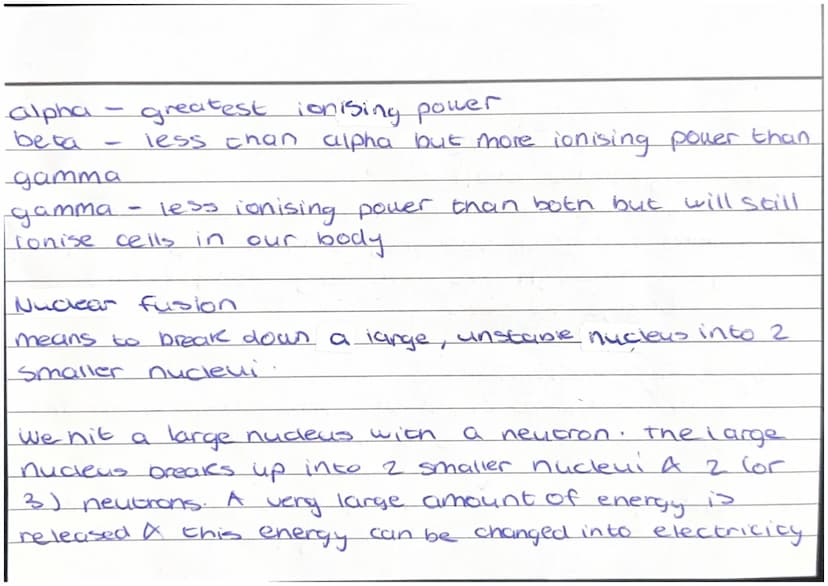 alpha - greatest ionising power
beta - less than alpha but more ionising power than
gamma
gamma - less ionising power than both but will still
ionise cells in our body
Nuclear fusion
means to break down a large, unstable nucleus into 2
smaller nucleui.
We hit a large nucleus with a neutron. The large
nucleus breaks up into 2 smaller nucleui & 2 (or
3) neutrons. A very large amount of energy is
released & this energy can be changed into electricity